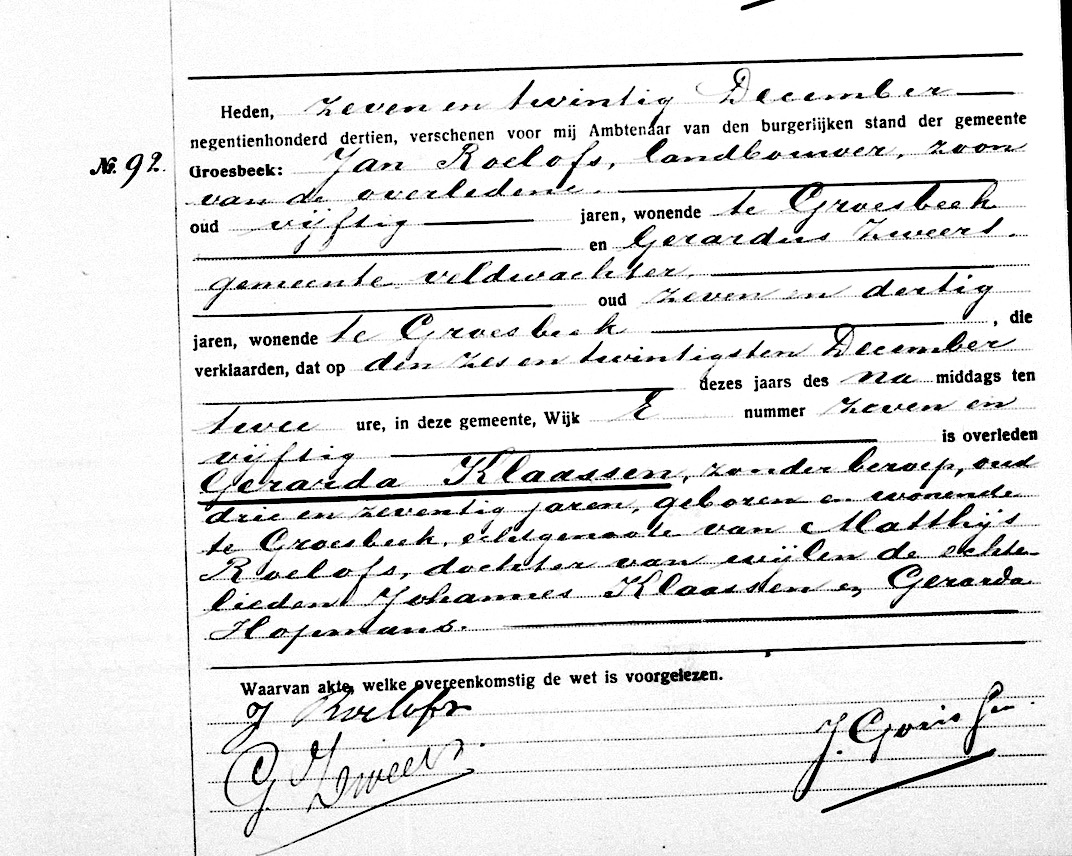 Heden, zeven en twintig December
negentienhonderd dertien, verschenen voor mij Ambtenaar van den burgerlijken stand der gemeente
No. 92. Groesbeek: Jan Roelofs, landbouwer, zoon
van de overledene.
oud vijftig jaren, wonende te Groesbeek
en Gerardus Zweers.
gemeente veldwachter.
oud zeven en dertig
jaren, wonende te Groesbeek , die
verklaarden, dat op den zes en twintigsten December
dezes jaars des na middags ten
twee ure, in deze gemeente, Wijk E nummer zeven en
vijftig is overleden
Gerarda Klaassen, zonder beroep, oud
drie en zeventig jaren, geboren en wonende
te Groesbeek, echtgenoote van Matthijs
Roelofs, dochter van wijlen de echte-
lieden Johannes Klaassen en Gerarda
Hopmans.
Waarvan akte, welke overeenkomstig de wet is voorgelezen.
J Roelofs
G. Zweers.
J. Goris